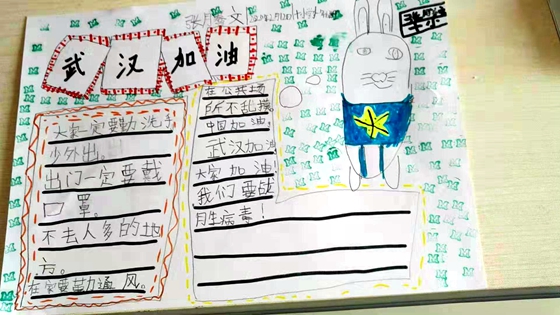 武汉加油
大家一定要勤洗手
少外出。
出门一定要戴
口罩。
不去人多的地
方。
在家要勤通风。
在公共场
所不乱摸
中国加油
武汉加油
大家加油!
我们要战
月生病毒!